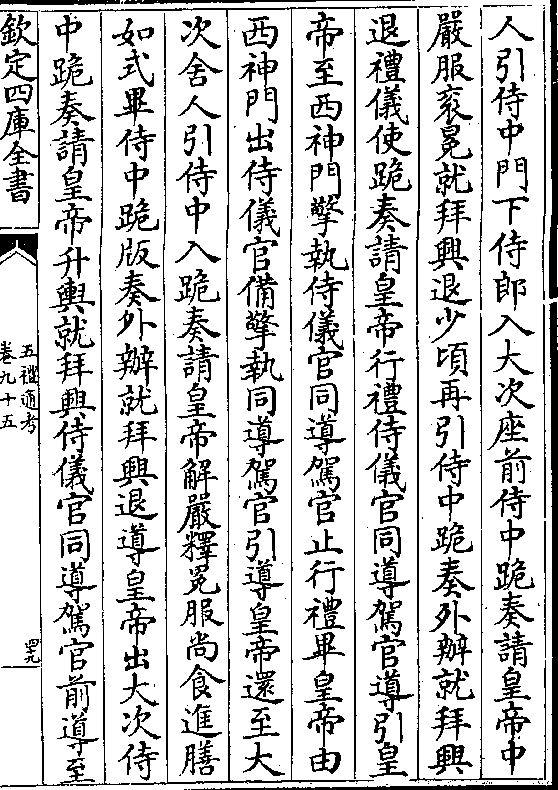 人引侍中門下侍郎入大次座前侍中跪奏請皇帝中
嚴服衮冕就拜興退少頃再引侍中跪奏外辦就拜興
退禮儀使跪奏請皇帝行禮侍儀官同導駕官導引皇
帝至西神門擎執侍儀官同導駕官止行禮畢皇帝由
西神門出侍儀官備擎執同導駕官引導皇帝還至大
次舍人引侍中入跪奏請皇帝解嚴釋冕服尚食進膳
如式畢侍中跪版奏外辦就拜興退導皇帝出大次侍
中跪奏請皇帝升輿就拜興侍儀官同導駕官前導至
欽定四庫全書
五禮通考
卷九十五
四九